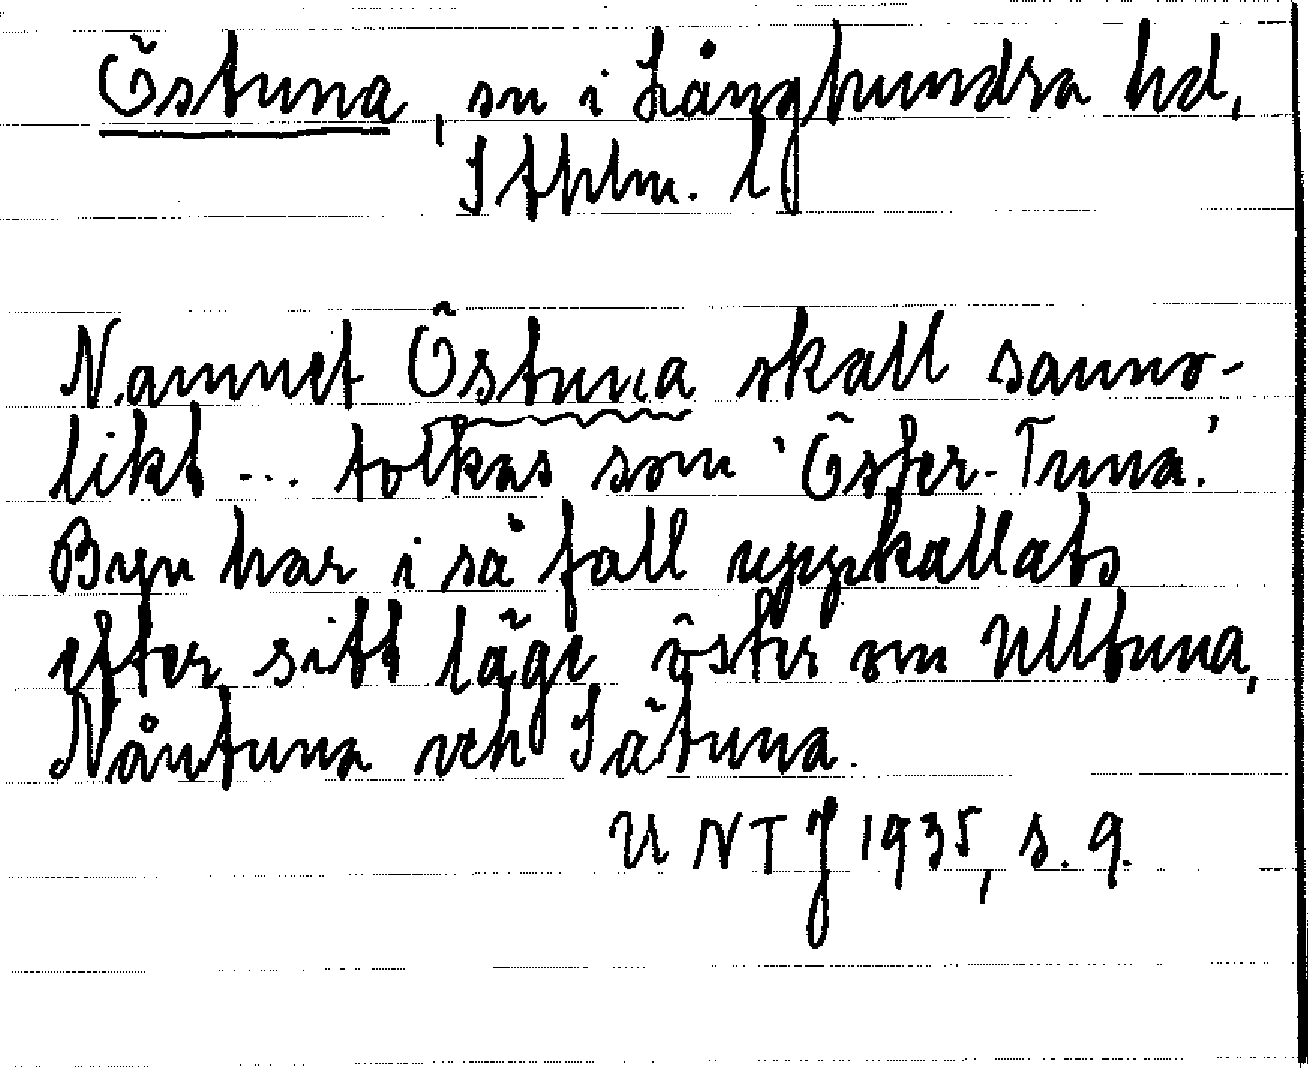 Östuna, sn i Långhundra hd,
Sthlm. l.
Namnet Östuna skall sanno-
likt ... tolkas som 'Öster-Tuna.'
Byn har i så fall uppkallats
efter sitt läge öster om Ulltuna,
Nåntuna och Sätuna.
UNTJ 1935, s. 9.